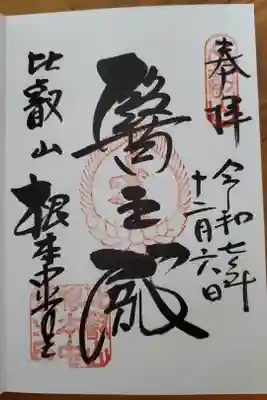 奉拝
令和七年
十二月六日
醫王殿
比叡山
根本中堂